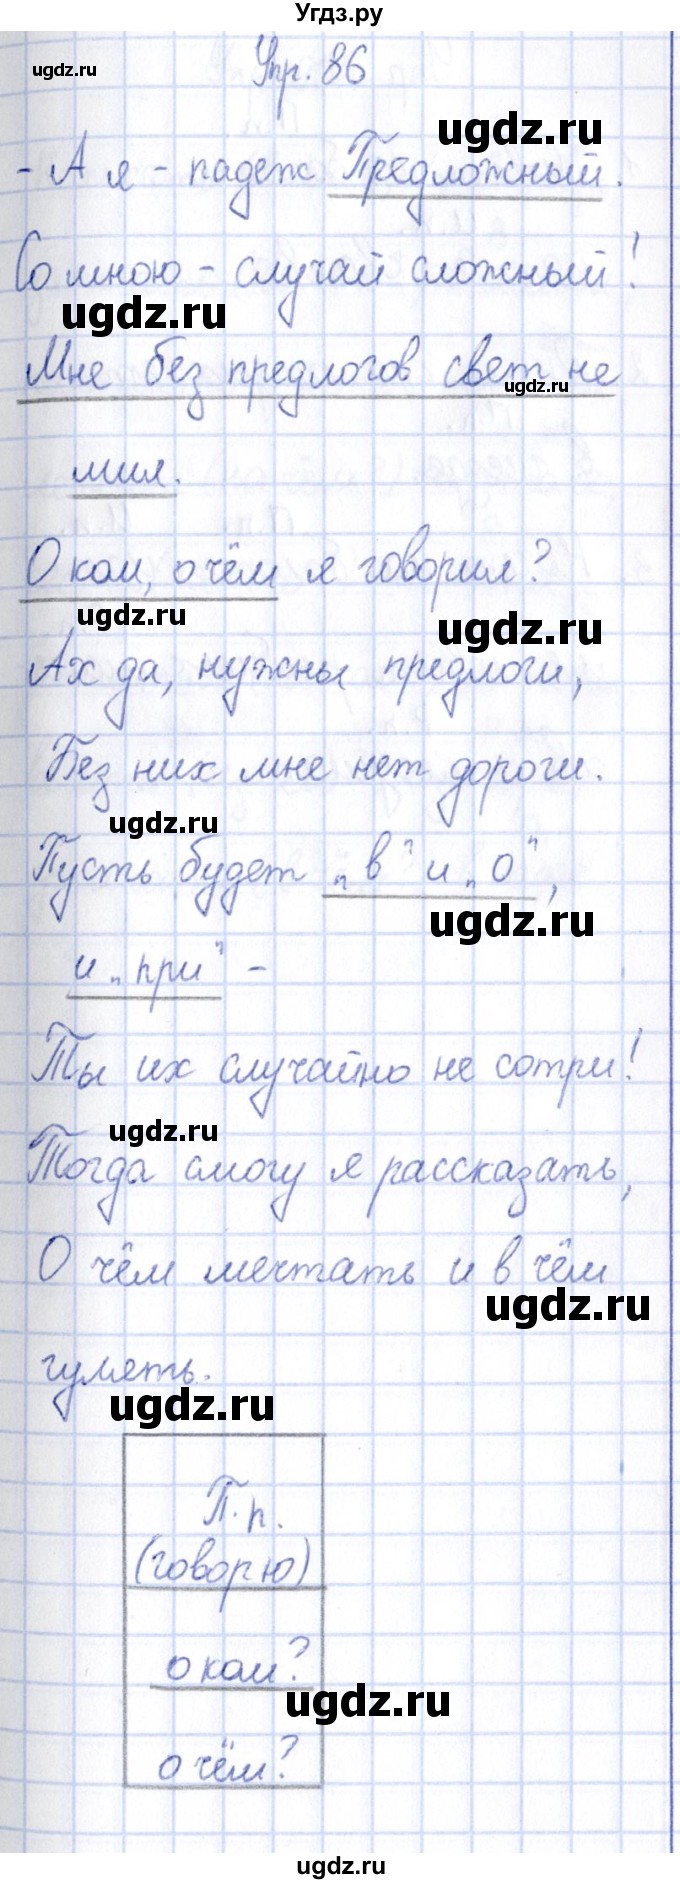 Угдз.ру
ugdz.ru
Упр. 86
ugdz.ru
- А я - падеж Предложный.
Со мною - случай сложный!
ugdz.ru
Мне без предлогов свет не
ugdz.ru
мил.
О ком, о чём я говорил?
ugdz.ru
ugdz.ru
Ах да, нужны предлоги,
Без них мне нет дороги.
ugdz.ru
Пусть будет „в" и „о",
ugdz.ru
и „при" -
Ты их случайно не сотри!
ugdz.ru
Тогда смогу я рассказать,
О чём мечтать и в чём
ugdz.ru
гулять.
ugdz.ru
П. п.
(говорю)
о ком?
ugdz.ru
о чём?
ugdz.ru